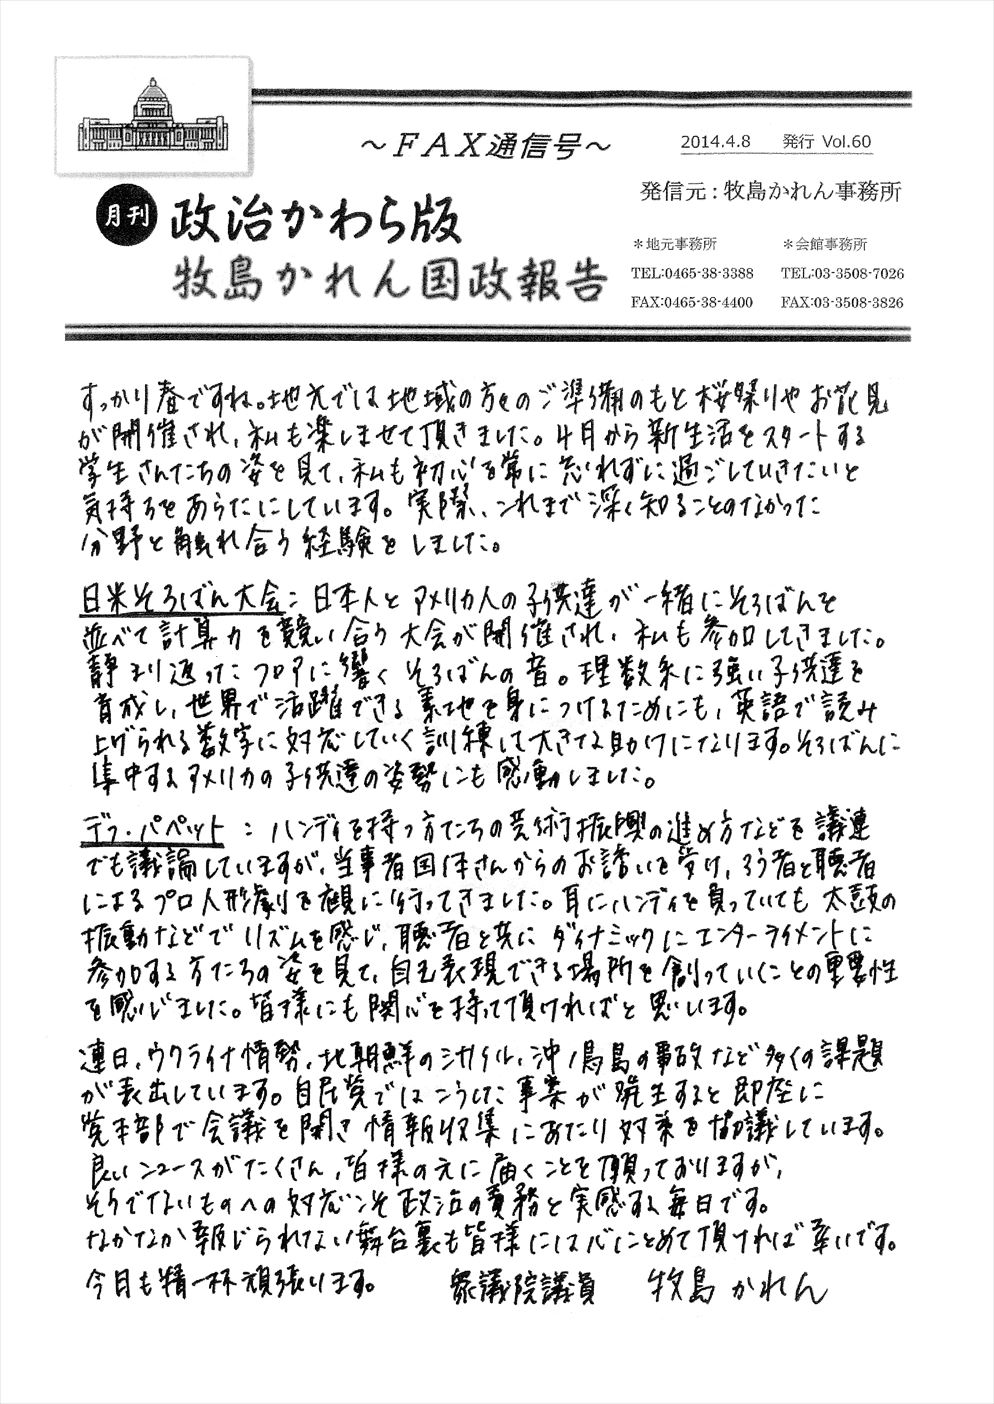 ～ＦＡＸ通信号～
2014.4.8 発行 Vol.60
発信元：牧島かれん事務所
月刊 政治かわら版
牧島かれん国政報告
＊地元事務所 ＊会館事務所
TEL:0465-38-3388 TEL:03-3508-7026
FAX:0465-38-4400 FAX:03-3508-3826
すっかり春ですね。地元では地域の方々のご準備のもと桜祭りやお花見
が開催され、私も楽しませて頂きました。4月から新生活をスタートする
学生さんたちの姿を見て、私も初心を常に忘れずに過ごしていきたいと
気持ちをあらたにしています。実際、これまで深く知ることのなかった
分野と触れ合う経験をしました。
日米そろばん大会：日本人とアメリカ人の子供達が一緒にそろばんを
並べて計算力を競い合う大会が開催され、私も参加してきました。
静まり返ったフロアに響くそろばんの音。理数系に強い子供達を
育成し、世界で活躍できる素地を身につけるためにも、英語で読み
上げられる数字に対応していく訓練は大きな助けになります。そろばんに
集中するアメリカの子供達の姿勢にも感動しました。
デフ・パペット：ハンディを持つ方たちの芸術振興の進め方などを議連
でも議論していますが、当事者団体さんからのお誘いを受け、ろう者と聴者
によるプロ人形劇を観に行ってきました。耳にハンディを負っていても太鼓の
振動などでリズムを感じ、聴者と共にダイナミックにエンターテイメントに
参加する方たちの姿を見て、自己表現できる場所を創っていくことの重要性
を感じました。皆様にも関心を持って頂ければと思います。
連日、ウクライナ情勢、北朝鮮のミサイル、沖ノ鳥島の事故など多くの課題
が表出しています。自民党ではこうした事案が発生すると即座に
党本部で会議を開き情報収集にあたり対策を協議しています。
良いニュースがたくさん、皆様の元に届くことを願っておりますが、
そうでないものへの対応こそ政治の責務と実感する毎日です。
なかなか報じられない舞台裏も皆様には心にとめて頂ければ幸いです。
今月も精一杯頑張ります。 衆議院議員 牧島かれん